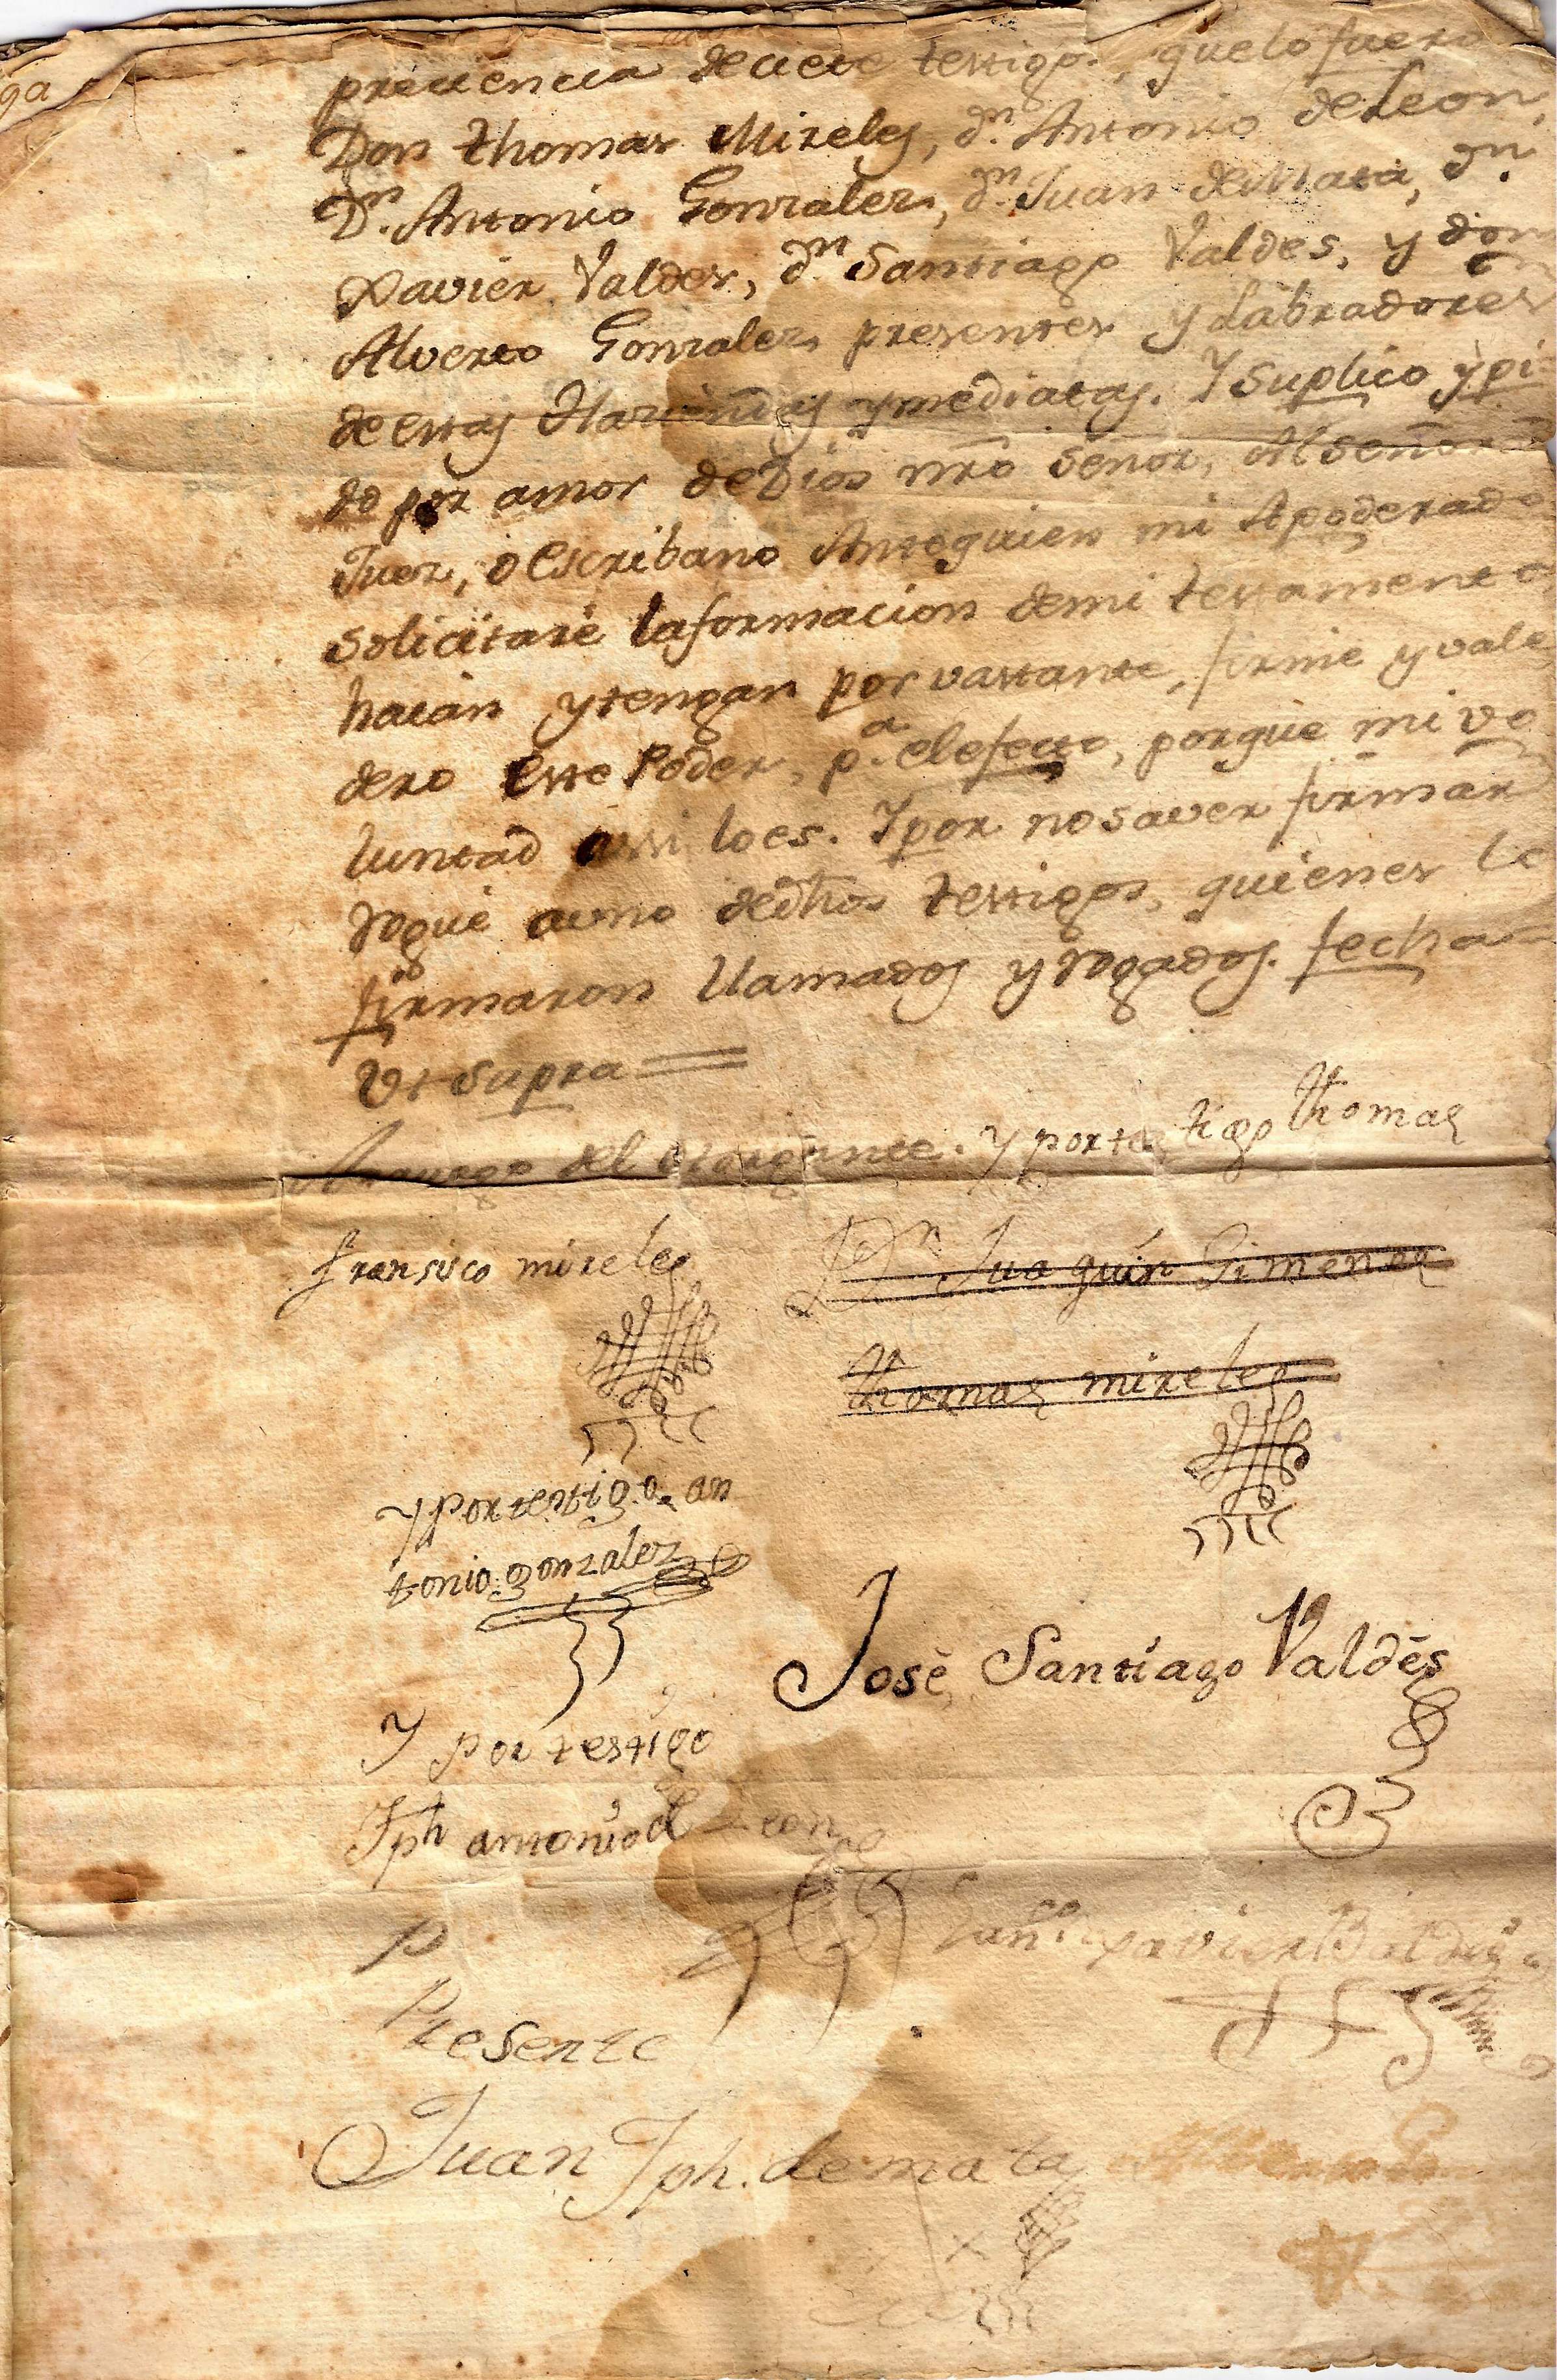 ga
preciencia deciete testigos, que lo fuero
Don Thomas Mireles, dn. Antonio de Leon,
Dn. Antonio Gonzalez, dn. Juan de Mata, dn.
Xavier Valdes, dn Santiago Valdes, y don
Alverto Gonzalez, presentes y Labradores
de estas Haziendas ymediatas. Y Suplico y pi
do por amor de Dios nro Señor, Al señor
Juez, o Escribano Antequien mi Apoderado
solicitare laformacion demi testamento
hacian ytengan por vastante, firme y vale
dero Este Poder, pa. elefecto, porque mi vo
luntad assi loes. Ypor nosaver firmar
rogue auno dedhos testigos, quienes lo
firmaron llamados y rogados. fecha
Vt supra =
Aruego del otorgante. Y por testigo Thomas
fransisco mireles
Dn Juaquin Gimenez
Thomas mireles
Y por testigo an
tonio gonzalez
José Santiago Valdés
Y por testigo
Jph antonio de Leon
P
Franco. xavier Baldés
Presente
Juan Jph. de mata